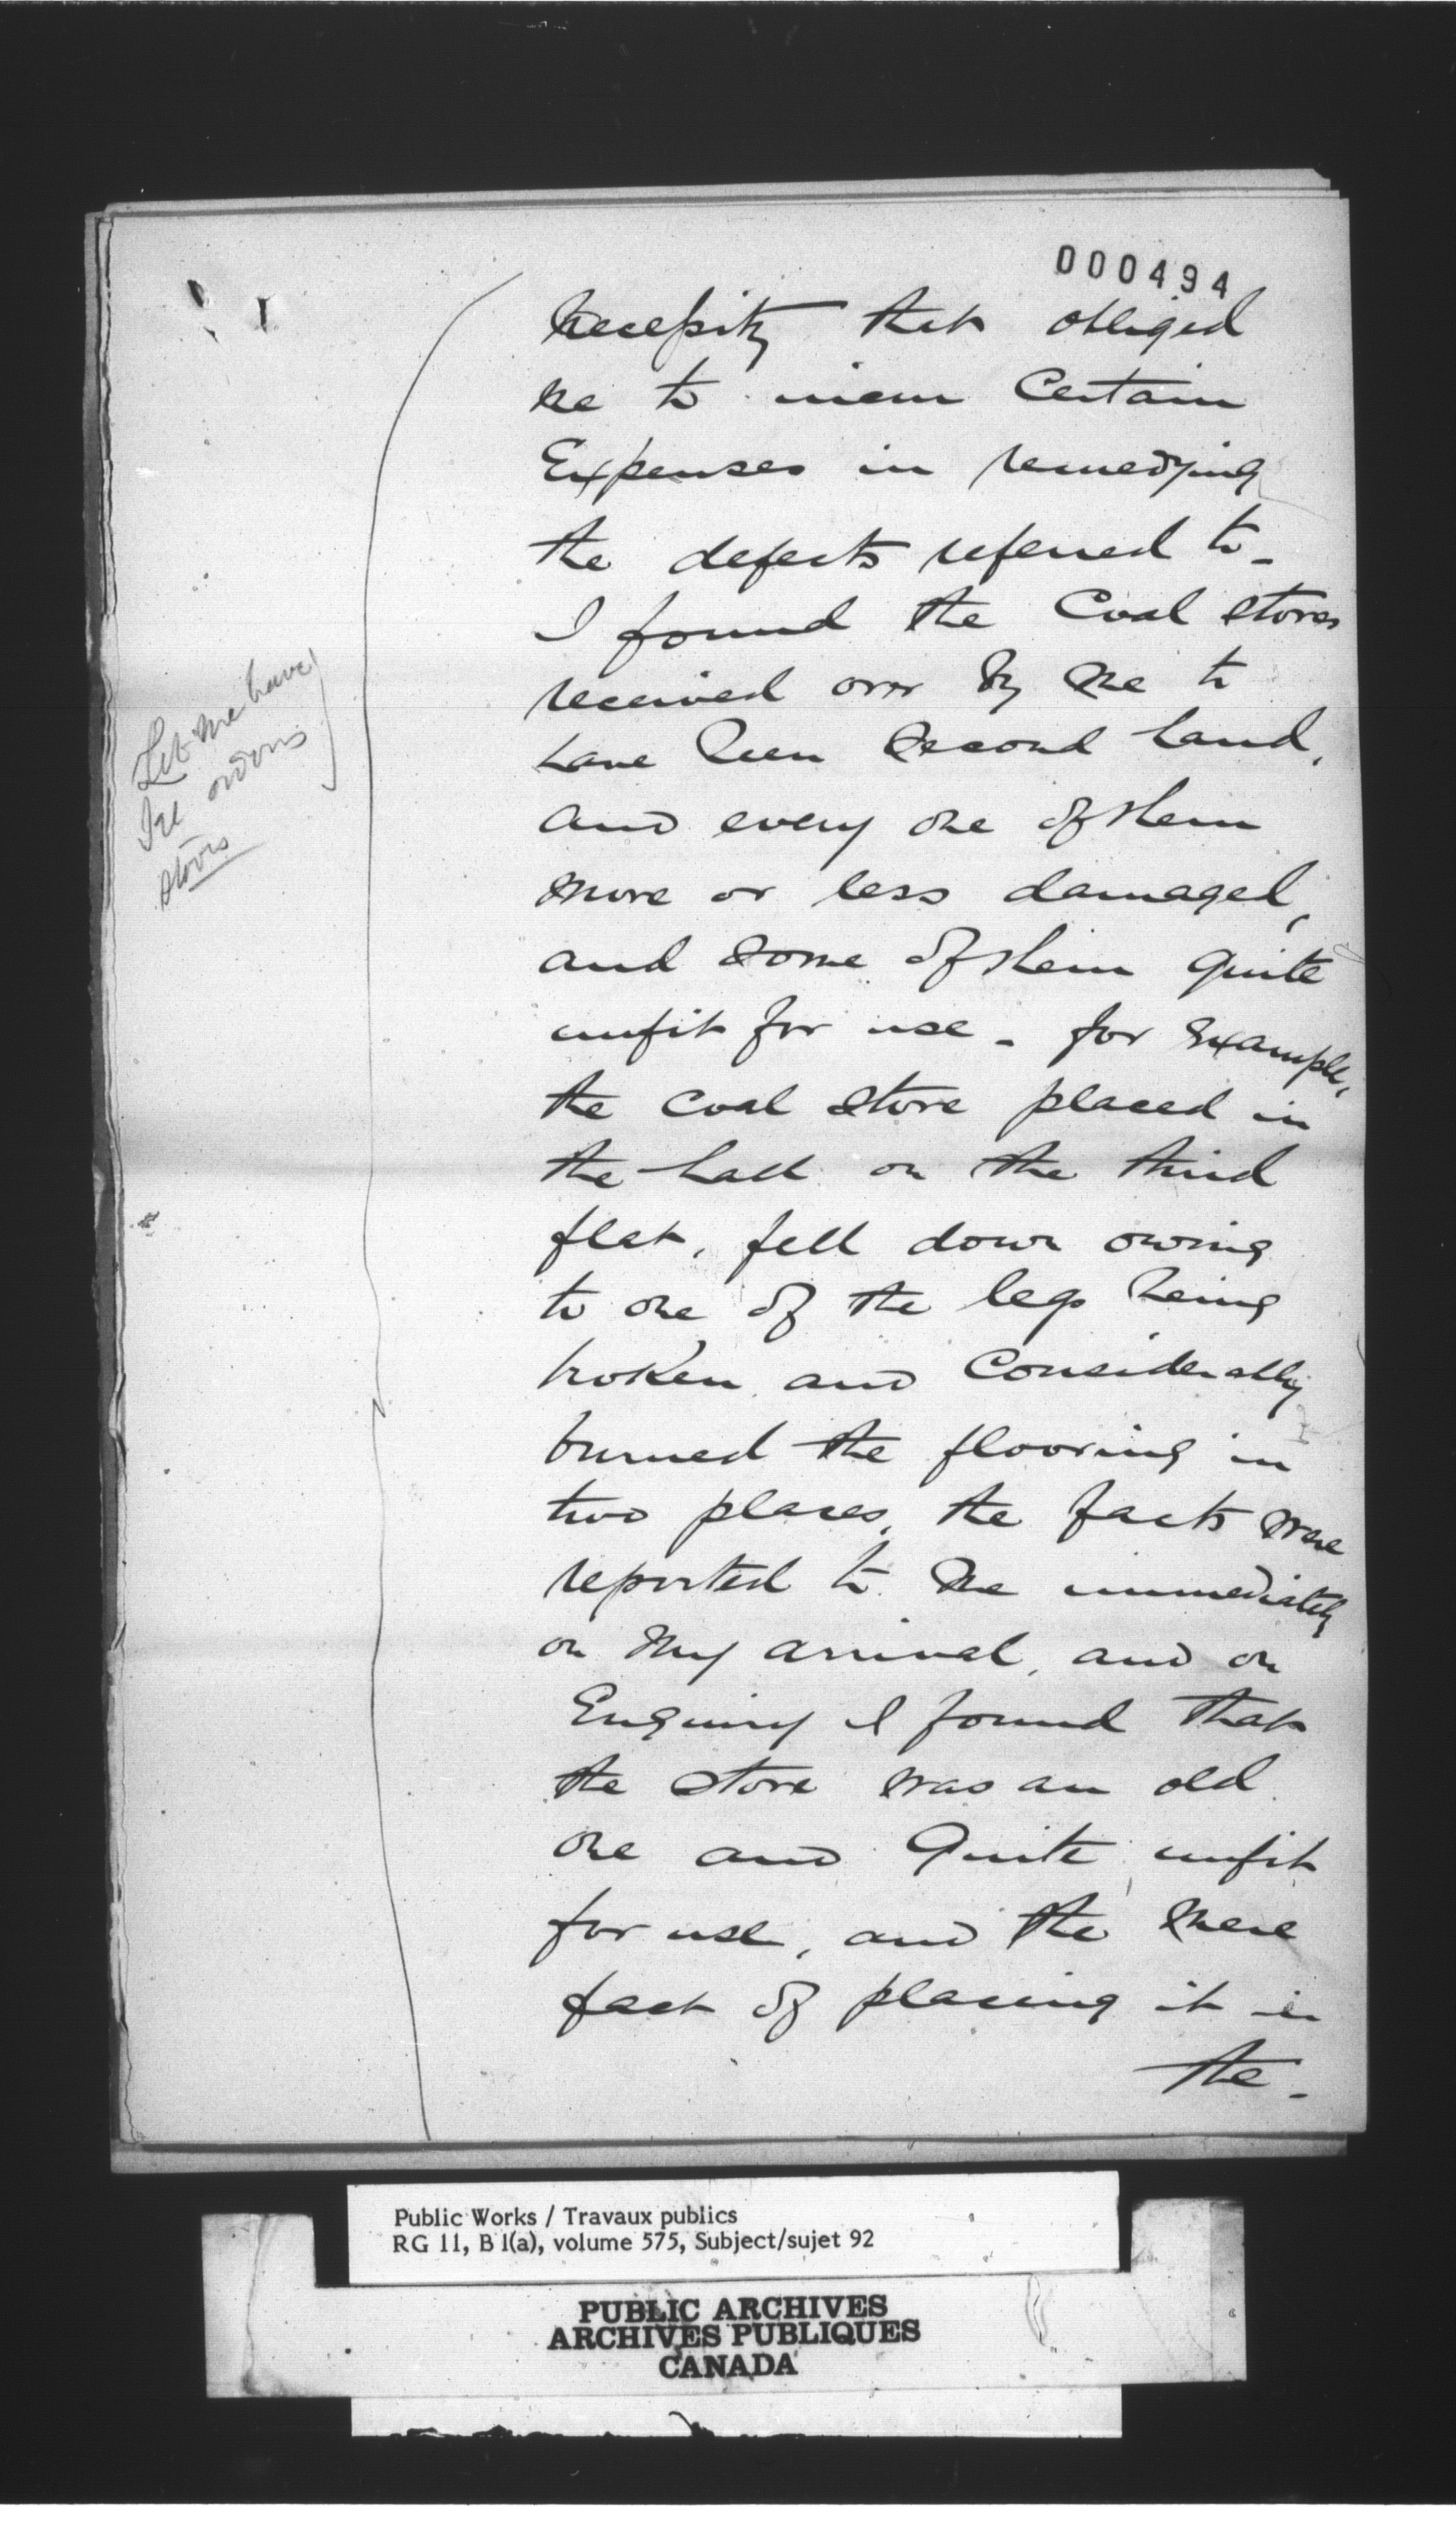 000494
necessity that obliged
me to incur Certain
Expenses in remedying
the defects referred to -
I found the Coal stoves
received over by me to
have been second hand,
and every one of them
more or less damaged,
and some of them quite
unfit for use - for Example,
the coal stove placed in
the hall on the third
flat, fell down owing
to one of the legs being
broken and Considerably
burned the flooring in
two places, the facts were
reported to me immediately
on my arrival, and on
Enquiry I found that
the stove was an old
one and Quite unfit
for use, and the mere
fact of placing it in
the -
Let me have
stoves
Public Works / Travaux publics
RG 11, B 1(a), volume 575, Subject/sujet 92
PUBLIC ARCHIVES
ARCHIVES PUBLIQUES
CANADA